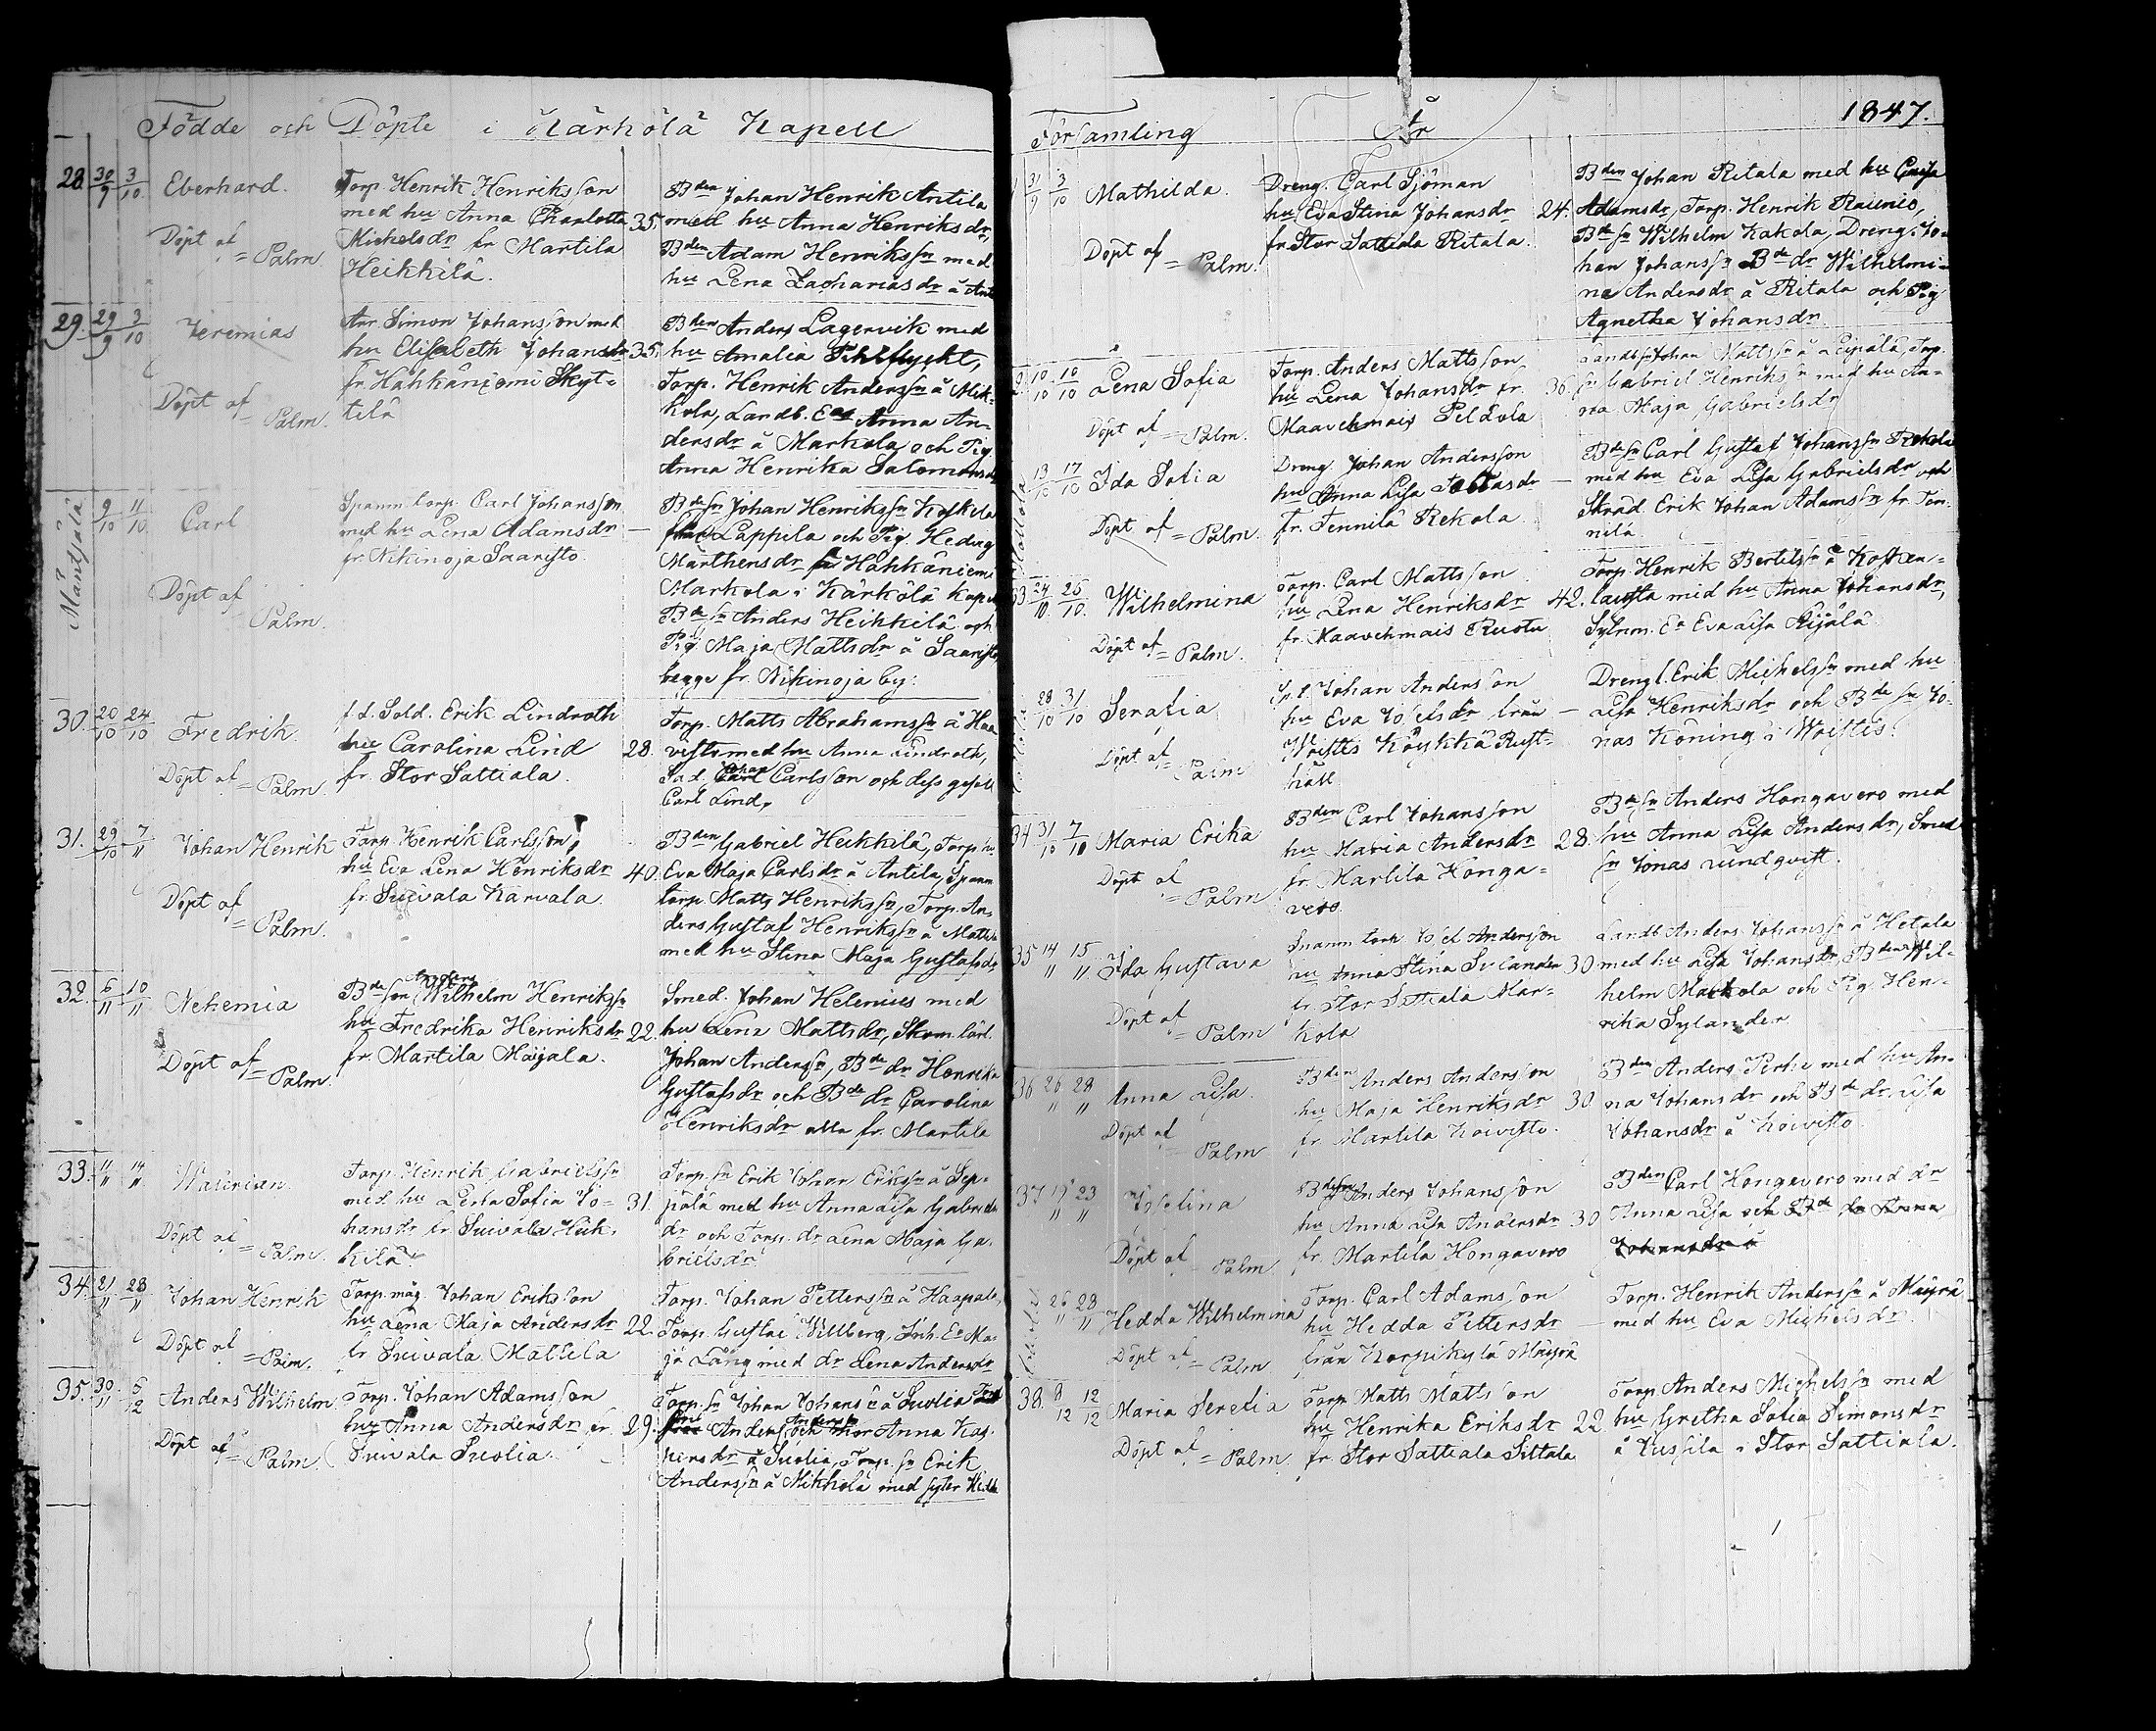 Födde och Döpte i Kärkölä Kapell
28. 30/9 3/10 Eberhard.
Döpt af = Palm
Torp. Henrik Henriksson
med hu Anna Charlotta
Michelsdr fr Martila
Heikkilä.
35.
Bden Johan Henrik Antila
med hu Anna Henriksdr,
Bden Adam Henrikssn med
hu Lena Zachariasdr å Ant
29. 29/9 3/10 Jeremias
Döpt af = Palm.
Arr. Simon Johansson med
hu Elisabeth Johansdr
fr. Hähkäniemi Skyt-
tilä
35.
Bden Anders Lagervik med
hu Amalia Pihlflyckt,
Torp. Henrik Anderssn å Mik-
kola, Landb. Ea Anna An-
dersdr å Markola och Pig.
Anna Henrika Salomonsdr
Mäntsälä
9/10 11/10 Carl
Döpt af = Palm.
Spanm.torp. Carl Johansson
med hu Lena Adamsdr
fr. Nikinoja Saaristo.
—
Bdesn Johan Henrikssn Koskela
Lappila och Pig. Hedvig
Mårthensdr fr Hähkäniemi
Markola i Kärkölä kapell
Bdesn Anders Heikkilä och
Pig. Maja Mattsdr å Saaristo,
begge fr. Nikinoja by.
30. 20/10 24/10 Fredrik.
Döpt af = Palm.
f.d. Sold. Erik Lindroth
hu Carolina Lind
fr. Stor Sattiala.
28.
Torp. Matts Abrahamssn å Haa
visto med hu Anna Lindroth,
Johan
Carl Carlsson och dess gesäll
Carl Lind,
31. 29/10 7/11 Johan Henrik
Döpt af = Palm.
Torp. Henrik Carlsson,
hu Eva Lena Henriksdr
fr. Suivala Karvala.
40.
Bden Gabriel Heikkilä, Torp. hu
Eva Maja Carlsdr å Antila, Spanm
torp. Matts Henrikssn, Torp. An-
ders Gustaf Henrikssn å Mattila
med hu Stina Maja Gustafsdr,
32. 6/11 10/11 Nehemia
Döpt af = Palm.
Anders
Bdeson Wilhelm Henrikssn
hu Fredrika Henriksdr
fr. Martila Maijala.
22.
Smed. Johan Helenius med
hu Lena Mattsdr, Skom.lärl.
Johan Anderssn, Bdedr Henrika
Gustafsdr och Bdedr Carolina
Henriksdr alla fr. Martila
33. 11/11 14/11 Walerian.
Döpt af = Palm.
Torp. Henrik Gabrielssn
med hu Lena Sofia Jo-
hansdr fr. Suivala Heik-
kilä
31.
Torp.sn Erik Johan Erikssn å Sep-
pälä med hu Anna Lisa Gabriels
dr och Torp. dr Lena Maja Ga-
brielsdr
34. 21/11 28/11 Johan Henrik
Döpt af = Palm.
Torp.måg. Johan Eriksson
hu Lena Maja Andersdr
fr Suivala Mattila
22.
Torp. Johan Petterssn å Haapala,
Torp. Gustaf Willberg, Inh. Ea Ma-
ja Lång med dr Lena Andersdr
35. 30/11 5/12 Anders Wilhelm
Döpt af = Palm.
Torp. Johan Adamsson
hu Anna Andersdr fr.
Suivala Suolia.
29.
Torp.sn Johan Johanssn å Suolia
Anders och Anna Kas-
persdr å Suolia, Torp. sn Erik
Anderssn å Mikkola med syster
Församling År 1847.
31/9 3/10 Mathilda.
Döpt af = Palm.
Dreng. Carl Sjöman
hu Eva Stina Johansdr
fr. Stor Sattiala Ritala.
24.
Bden Johan Ritala med hu Caisa
Adamsdr, Torp. Henrik Raunio,
Bdesn Wilhelm Kakola, Dreng. Jo-
han Johanssn Bdedr Wilhelmi-
na Andersdr å Ritala och Pig
Agnetha Johansdr
10/10 10/10 Lena Sofia
Döpt af = Palm.
Torp. Anders Mattsson
hu Lena Johansdr fr
Maavehmais Peldola
36.
Landb.sn Johan Mattssn å Leipälä, Torp.
sn Gabriel Henrikssn med hu An-
na Maja Gabrielsdr
13/10 17/10 Ida Sofia
Döpt af = Palm.
Dreng. Johan Andersson
hu Anna Lisa
fr. Tennilä Rekola.
—
Bdesn Carl Gustaf Johanssn Rekola
med hu Eva Lisa Gabrielsdr och
Skräd. Erik Johan Adamssn fr. Ten-
nilä.
33 24/10 26/10 Wilhelmina
Döpt af = Palm.
Torp. Carl Mattsson
hu Lena Henriksdr
fr. Maavehmais Ruotu
42.
Torp. Henrik Bertilssn å Kosken-
lausta med hu Anna Johansdr,
Sytnm. Ea Eva Lisa Äijälä
28/10 31/10 Serafia
Döpt af = Palm
Johan Andersson
hu Eva Josefsdr från
Woistis Köykkä Rust-
håll
—
Drengl. Erik Michelssn med hu
Lisa Henriksdr och Bdesn Jo-
nas Köning i Woistis.
34 31/10 7/10 Maria Erika
Döpt af = Palm
Bden Carl Johansson
hu Maria Andersdr
fr. Martila Honga-
vero.
28.
Bdesn Anders Hongavero med
hu Anna Lisa Andersdr, Smed
sn Jonas Lundqvist.
35 14/11 15/11 Ida Gustava
Döpt af = Palm
Spanm.torp. Josef Andersson
hu Anna Stina Sylander
fr. Stor Sattiala Mar-
kola
30.
Landb. Anders Johanssn å Hetala
med hu Lisa Johansdr, Bden Wil-
helm Markola och Pig. Hen-
rika Sylander
36 26/11 28/11 Anna Lisa.
Döpt af = Palm
Bden Anders Andersson
hu Maja Henriksdr
fr. Martila Koivisto.
30
Bden Anders Perhe med hu An-
na Johansdr och Bdedr Lisa
Johansdr å Koivisto
37 19/11 23/11 Josefina
Döpt af = Palm
Bdesn Anders Johansson
hu Anna Lisa Andersdr
fr. Martila Hongavero
30
Bden Carl Hongavero med dr
Anna Lisa och Bde dr Anna
Johansdr å
26/11 28/11 Hedda Wilhelmina
Döpt af = Palm
Torp. Carl Adamsson
hu Hedda Pettersdr
från Korpikylä Mäyrä
—
Torp. Henrik Anderssn å Mäyrä
med hu Eva Michelsdr.
38. 8/12 12/12 Maria Serefia
Döpt af = Palm.
Torp. Matts Mattsson
hu Henrika Eriksdr
fr. Stor Sattiala Sittala
22
Torp. Anders Michelssn med
hu Gretha Sofia Simonsdr
å Jussila i Stor Sattiala.